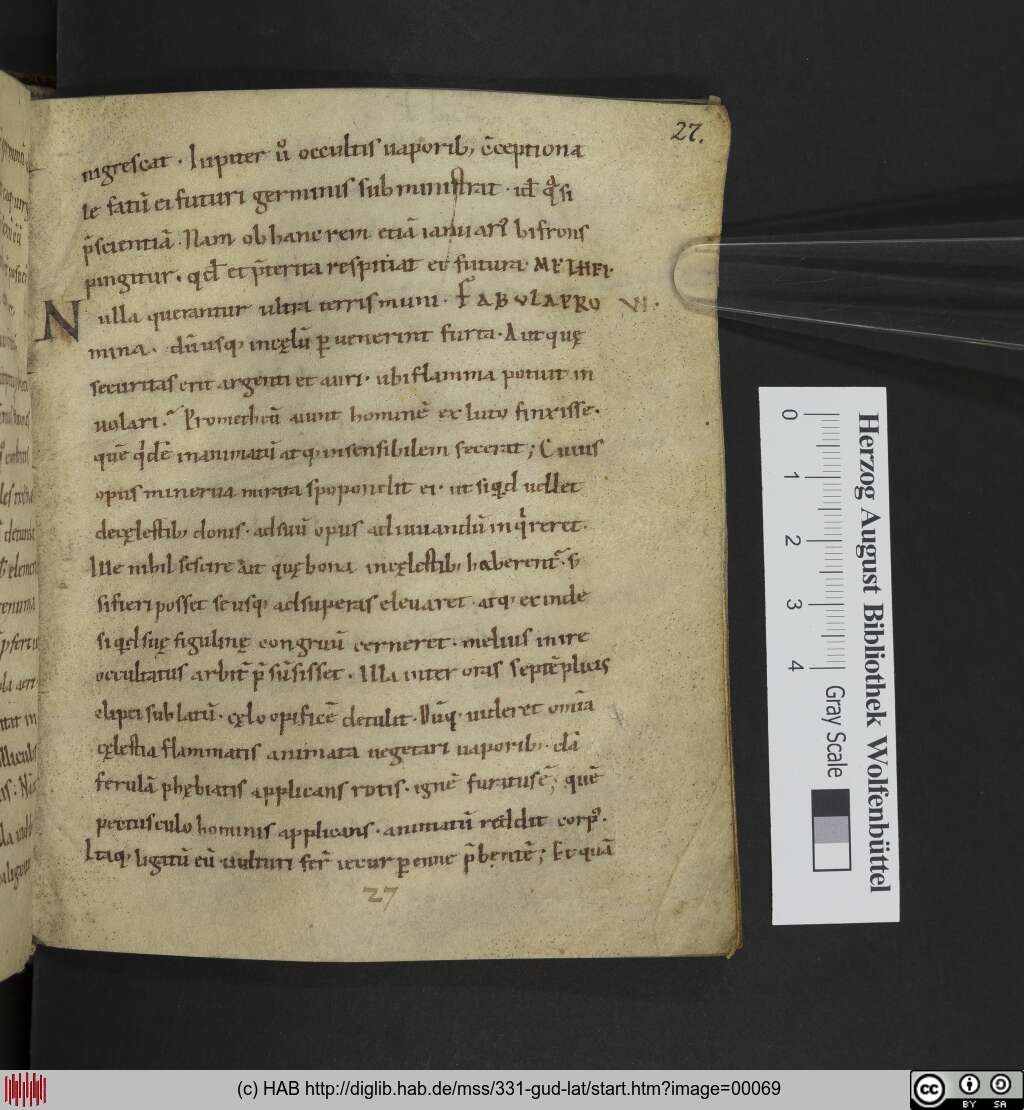 27.
nigrescat · Iupiter ů occultis uaporib; c̄ceptiona
le fatū ei futuri germinis subministrat · id̄ q̊si
p̄scientiā · Nam ob hanc rem etiā ianuariꝰ bifrons
pingitur · qd̄ et p̄terita respitiat et futura · METHFI·
Nulla querantur ultra terris muni · FABULAPRO VI·
mina · dūusq; incęlū ꝑuenerint furta · Aut quę
securitas erit argenti et auri · ubi flamma potuit in
uolari · Prometheū aiunt hominē ex luto finxisse ·
quē qͥdē inanimatū atq; insensibilem fecerat ; Cuius
opus minerua mirata spopondit ei · ut siqͥd uellet
decęlestib; donis · adsuū opus adiuuandū inqͥreret ·
Ille nihil se scire ait quę bona incęlestib; haberent᷑ · s̄
si fieri posset se usq; adsuperas eleuaret · atq; exinde
si qd suę figulinę congruū cerneret · melius in re
occultatus arbit̄ p̄sūsisset · Illa inter oras septēplicis
clipei sublatū · cęlo opificē detulit · Dūq; uideret omīa
cęlestia flammatis animata uegetari uaporib; · clā
ferulā phębiatis applicans rotis · ignē furatus ē; quē
pectusculo hominis applicans · animatū reddit corpꝰ ·
Itaq; ligatū eū uulturi fer̄ iecur ꝑenne p̄bentē; Et quā
27
Herzog August Bibliothek Wolfenbüttel
0 1 2 3 4 Gray Scale
(c) HAB http://diglib.hab.de/mss/331-gud-lat/start.htm?image=00069
cc BY SA